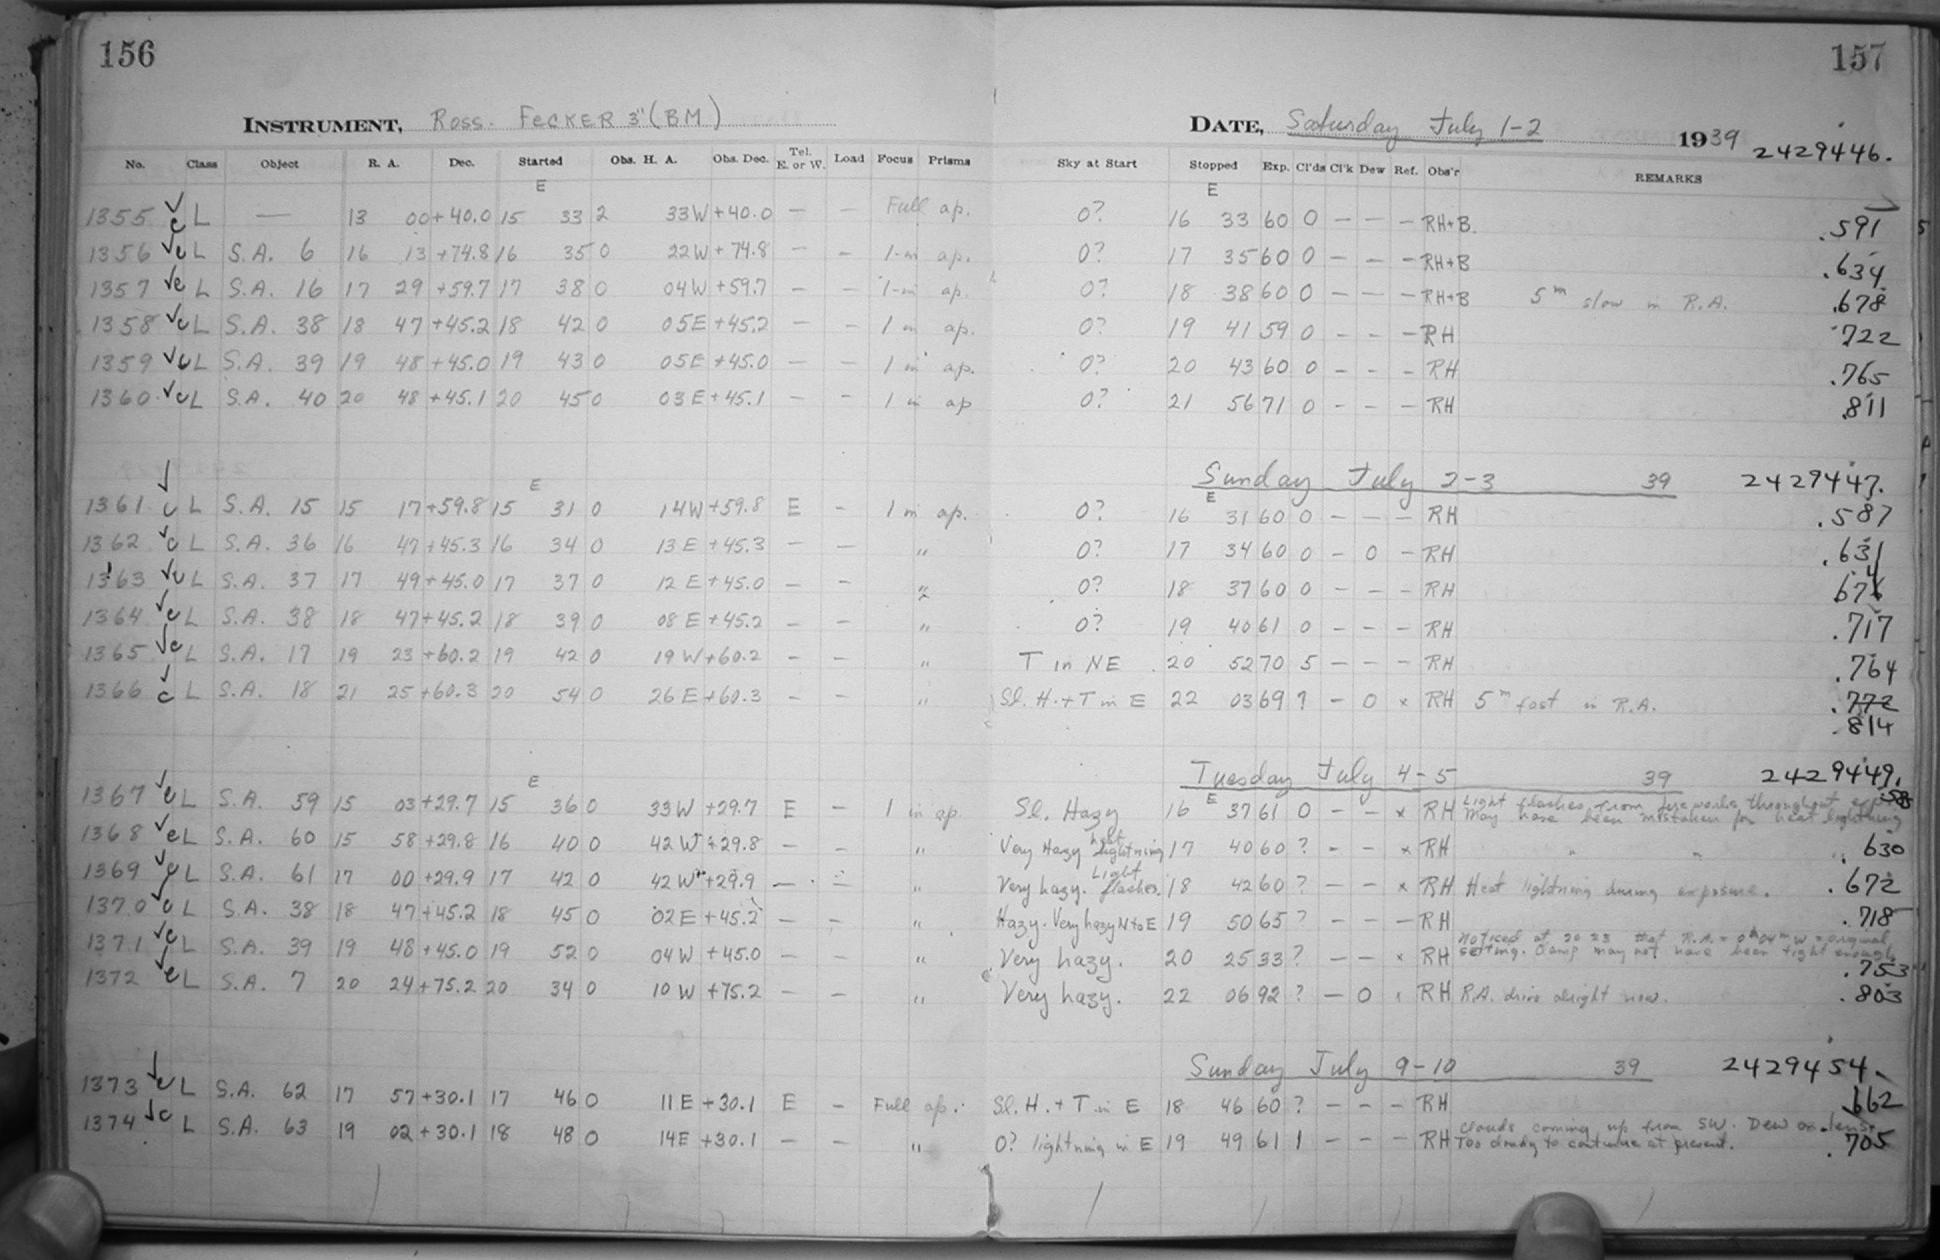 156
157
INSTRUMENT, Ross. FECKER 3" (BM)
DATE, Saturday July 1-2 1939 2429446.
No. Class Object R. A. Dec. Started Obs. H. A. Obs. Dec. Tel. E. or W. Load Focus Prisms Sky at Start Stopped Exp. Cl'ds Cl'k Dew Ref. Obs'r REMARKS
E E
1355 √ c L — 13 00 +40.0 15 33 2 33W +40.0 — — Full ap. 0? 16 33 60 0 — — — RH+B. .591
1356 √ c L S.A. 6 16 13 +74.8 16 35 0 22W +74.8 — — 1-in ap. 0? 17 35 60 0 — — — RH+B .634
1357 √ c L S.A. 16 17 29 +59.7 17 38 0 04W +59.7 — — 1-in ap. 0? 18 38 60 0 — — — RH+B 5m slow in R.A. .678
1358 √ c L S.A. 38 18 47 +45.2 18 42 0 05E +45.2 — — 1 in ap. 0? 19 41 59 0 — — — RH 722
1359 √ c L S.A. 39 19 48 +45.0 19 43 0 05E +45.0 — — 1 in ap. 0? 20 43 60 0 — — — RH .765
1360 √ c L S.A. 40 20 48 +45.1 20 45 0 03E +45.1 — — 1 in ap 0? 21 56 71 0 — — — RH .811
Sunday July 2-3 39 2429447.
E E
1361 √ c L S.A. 15 15 17 +59.8 15 31 0 14W +59.8 E — 1 in ap. 0? 16 31 60 0 — — — RH .587
1362 √ c L S.A. 36 16 47 +45.3 16 34 0 13E +45.3 — — " 0? 17 34 60 0 — 0 — RH .631
1363 √ c L S.A. 37 17 49 +45.0 17 37 0 12E +45.0 — — " 0? 18 37 60 0 — — — RH
1364 √ c L S.A. 38 18 47 +45.2 18 39 0 08E +45.2 — — " 0? 19 40 61 0 — — — RH .717
1365 √ c L S.A. 17 19 23 +60.2 19 42 0 19W +60.2 — — " T in NE 20 52 70 5 — — — RH .764
1366 √ c L S.A. 18 21 25 +60.3 20 54 0 26E +60.3 — — " Sl. H. + T in E 22 03 69 ? — 0 x RH 5m fast in R.A. .772
.814
Tuesday July 4-5 39 2429449.
E E
1367 √ c L S.A. 59 15 03 +29.7 15 36 0 33W +29.7 E — 1 in ap. Sl. Hazy 16 37 61 0 — — x RH Light flashes from fireworks throughout
may have been mistaken for heat lightning
1368 √ c L S.A. 60 15 58 +29.8 16 40 0 42W +29.8 — — " Very Hazy heat lightning 17 40 60 ? — — x RH " " .630
1369 √ c L S.A. 61 17 00 +29.9 17 42 0 42W +29.9 — — " Very hazy. Light flashes. 18 42 60 ? — — x RH Heat lightning during exposure. .672
1370 √ c L S.A. 38 18 47 +45.2 18 45 0 02E +45.2 — — " Hazy. Very hazy N to E 19 50 65 ? — — — RH .718
1371 √ c L S.A. 39 19 48 +45.0 19 52 0 04W +45.0 — — " Very hazy. 20 25 33 ? — — x RH Noticed at 20 23 that R.A. = 0h04m W = original
setting. Clamp may not have been tight enough .753
1372 √ c L S.A. 7 20 24 +75.2 20 34 0 10W +75.2 — — " Very hazy. 22 06 92 ? — 0 RH R.A. drive alright now. .803
Sunday July 9-10 39 2429454.
1373 √ c L S.A. 62 17 57 +30.1 17 46 0 11E +30.1 E — Full ap. Sl. H. + T in E 18 46 60 ? — — — RH .662
1374 √ c L S.A. 63 19 02 +30.1 18 48 0 14E +30.1 — — " 0? lightning in E 19 49 61 1 — — — RH Clouds coming up from SW. Dew on lens.
Too cloudy to continue at present. .705